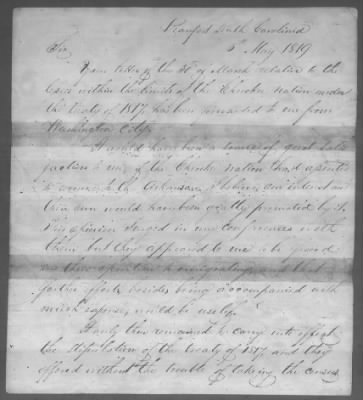 Beaufort South Carolina
5 May 1819
Sir
Your letter of the 30 of March relative to the
within the limits of the Cherokee Nation under
the treaty of 1817, has been forwarded to me from
Washington City.
It would have been a source of great satis
faction to me if the Cherokee Nation had
to remove to the Arkansas, I believe our interest and
their own would have been greatly promoted by it.
This opinion I in my conferences with
them, but they appeared to me to be
and that
efforts besides being accompanied with
much expense, would be useless.
It only then remained to carry into effect
the stipulation of the treaty of 1817, and they
offered without the trouble of taking the census